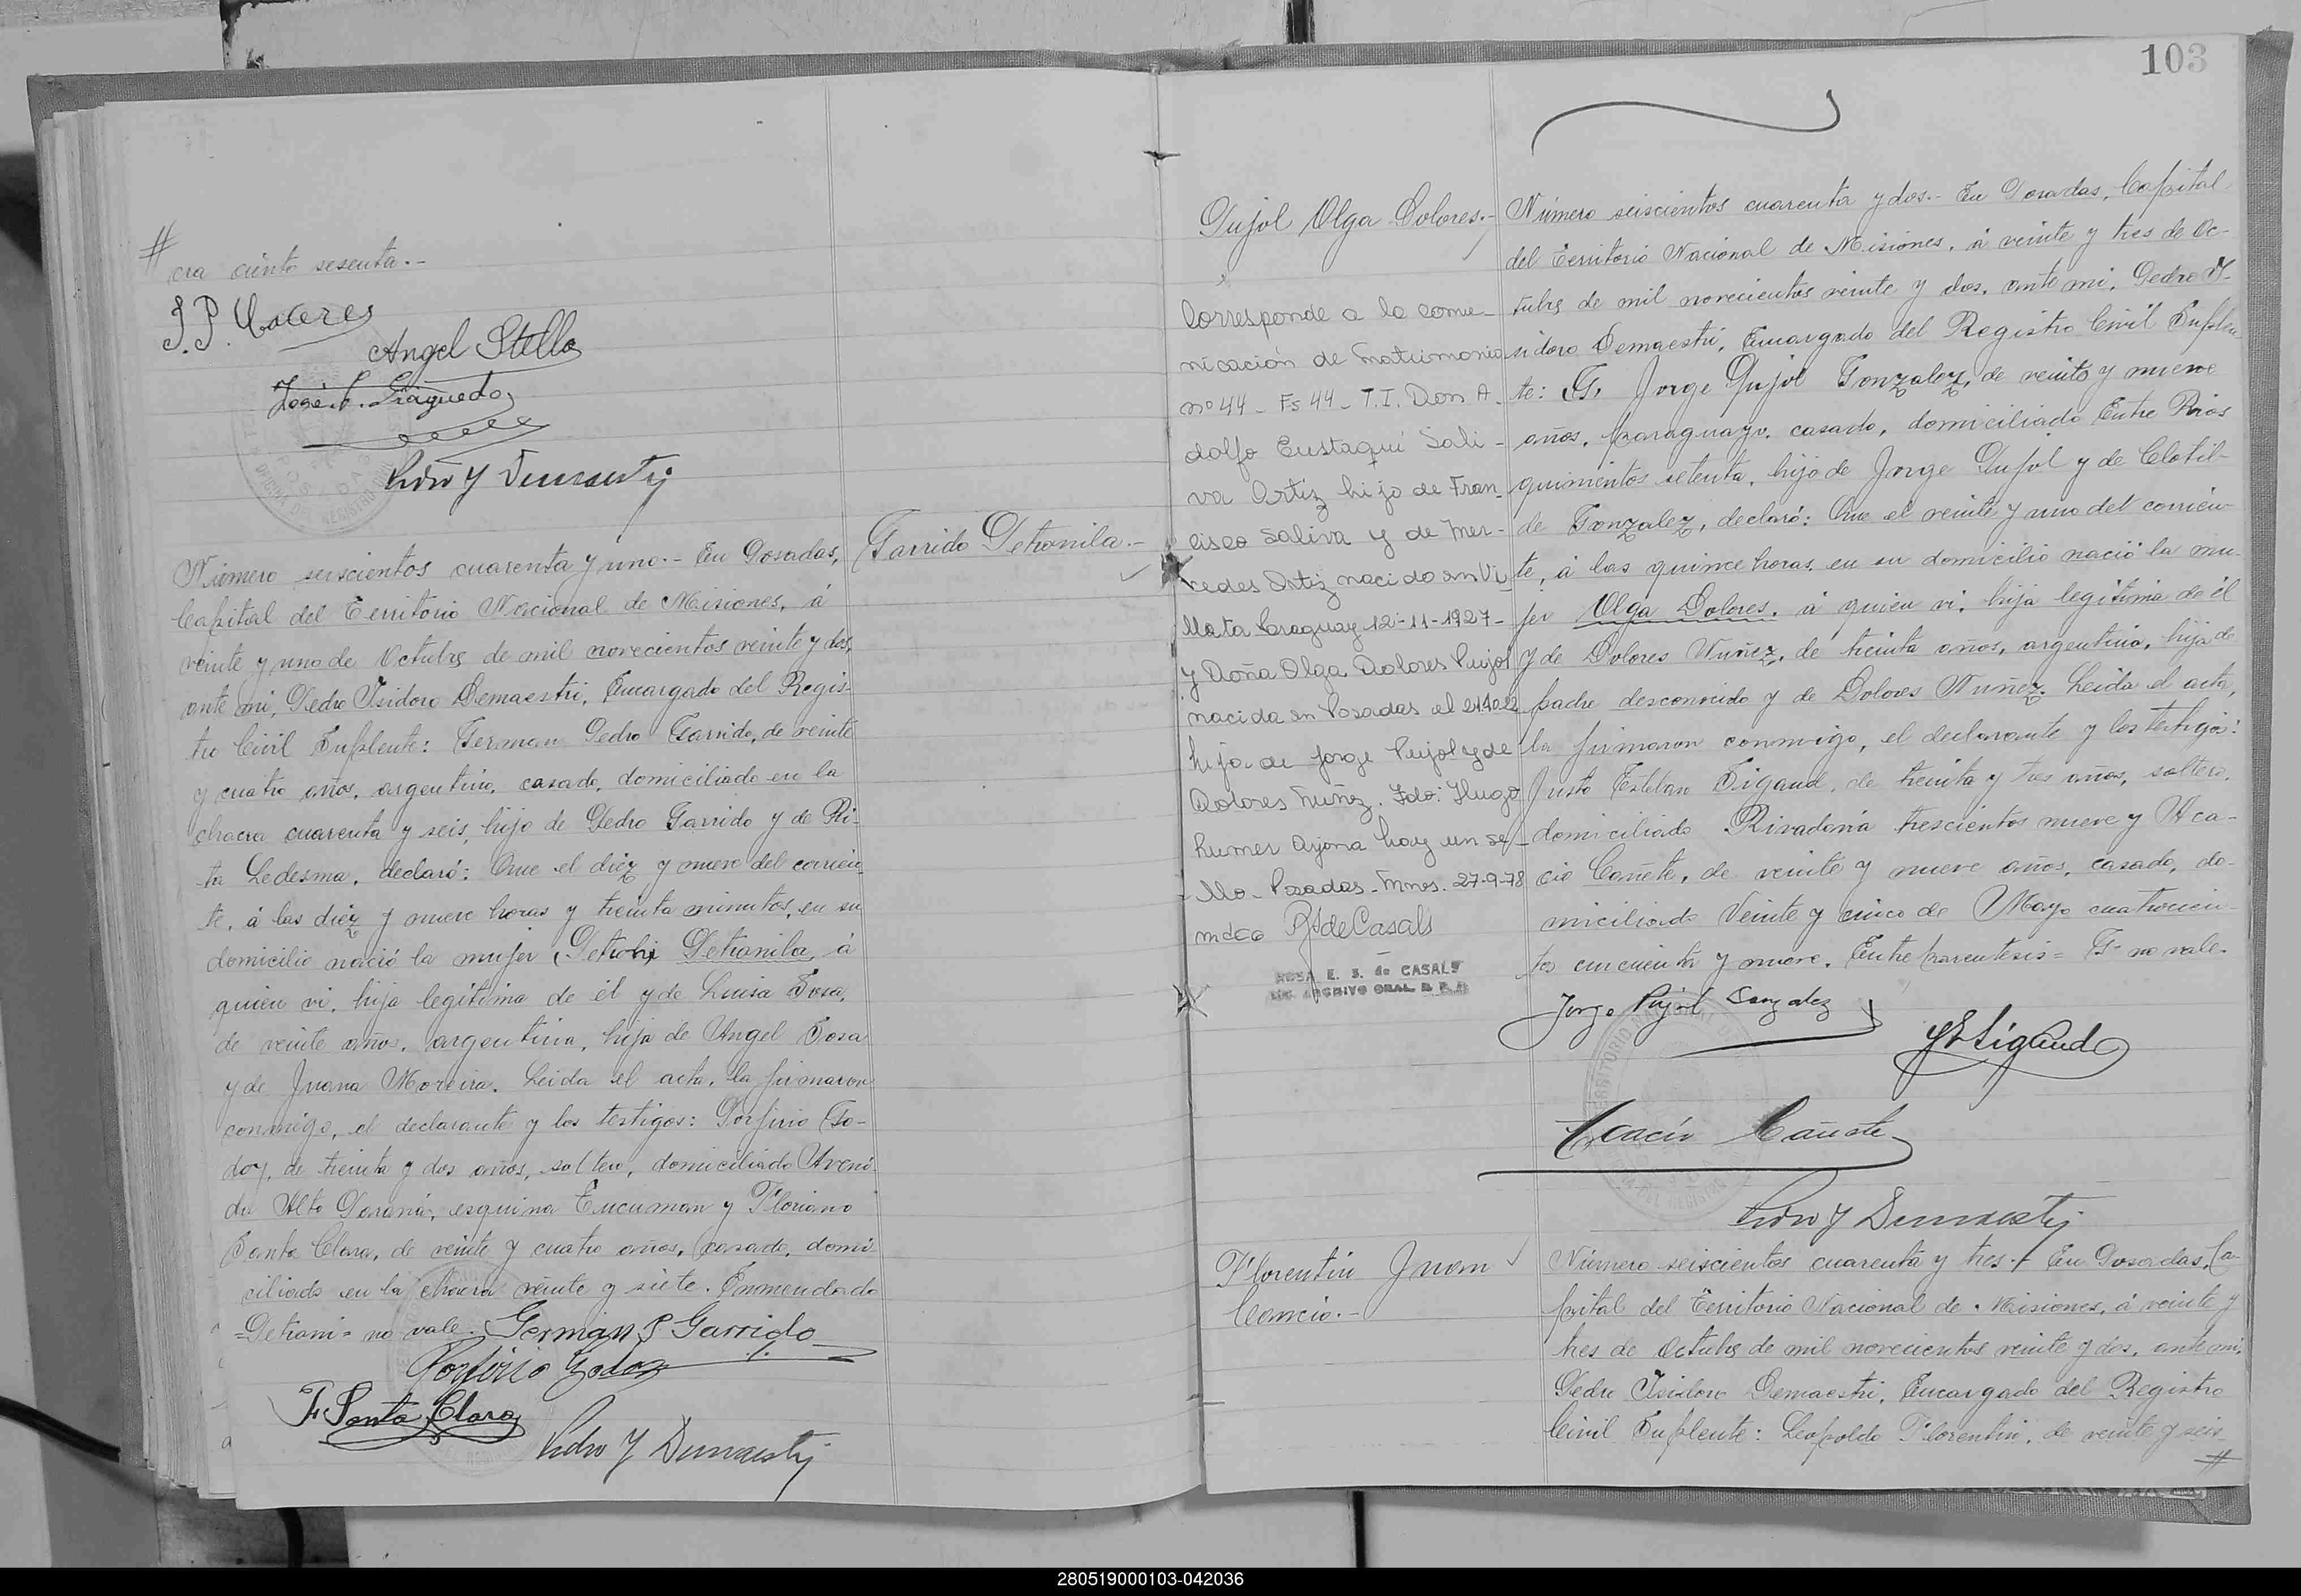 cra ciento sesenta.-
J. P. Caceres
Angel Stella
Pedro Y Demaestri
Número seiscientos cuarenta y uno.- En Posadas,
Capital del Territorio Nacional de Misiones, á
veinte y uno de Octubre de mil novecientos veinte y dos,
ante mi, Pedro Isidoro Demaestri, Encargado del Regis-
tro Civil Suplente: German Pedro Garrido, de veinte
y cuatro años, argentino, casado, domiciliado en la
chacra cuarenta y seis, hijo de Pedro Garrido y de Ri-
ta Ledesma, declaró: Que el diez y nueve del corrien-
te, á las diez y nueve horas y treinta minutos, en su
domicilio nació la mujer (Petroni) Petronila, á
quien vi, hija legitima de él y de Luisa Sosa,
de veinte años, argentina, hija de Angel Sosa
y de Juana Moreira. Leida el acta, la firmaron
conmigo, el declarante y los testigos: Porfirio Go-
doy, de treinta y dos años, soltero, domiciliado Aveni-
da Alto Paraná, esquina Tucuman y Floriano
Santa Clara, de veinte y cuatro años, casado, domi-
ciliado en la chacra veinte y siete. Enmendado
=Petroni= no vale.
German P. Garrido
Porfirio Godoy
F. Santa Clara
Pedro Y Demaestri
Garrido Petronila.-
103
Pujol Olga Dolores.-
Corresponde a la comu-
nicación de matrimonio
nº 44 - Fs 44 - T.I. Don A-
dolfo Eustaqui Sali-
va Ortiz hijo de Fran-
cisco Saliva y de Mer-
cedes Ortiz nacido en Vi-
lleta Paraguay 12-11-1927-
y Doña Olga Dolores Pujol
nacida en Posadas el 21-10-22
hija de Jorge Pujol y de
Dolores Nuñez. Fdo: Hugo
Arjona hay un se-
llo - Posadas - Mnes. 27-9-78
R S de Casals
ROSA E. S. de CASALS
ARCHIVO GRAL.
Número seiscientos cuarenta y dos.- En Posadas, Capital
del Territorio Nacional de Misiones, á veinte y tres de Oc-
tubre de mil novecientos veinte y dos, ante mi, Pedro I-
sidoro Demaestri, Encargado del Registro Civil Suplen-
te: (G) Jorge Pujol Gonzalez, de veinte y nueve
años, paraguayo, casado, domiciliado Entre Rios
quinientos setenta, hijo de Jorge Pujol y de Clotil-
de Gonzalez, declaró: Que el veinte y uno del corrien-
te, á las quince horas, en su domicilio nació la mu-
jer Olga Dolores, á quien vi, hija legitima de él
y de Dolores Nuñez, de treinta años, argentina, hija de
padre desconocido y de Dolores Nuñez. Leida el acta,
la firmaron conmigo, el declarante y los testigos:
Justo Esteban Sigaud, de treinta y tres años, soltero,
domiciliado Rivadavia trescientos nueve y Aca-
cio Cañete, de veinte y nueve años, casado, do-
miciliado Veinte y cinco de Mayo cuatrocien-
tos cincuenta y nueve. Entre parentesis = G = no vale.
Jorge Pujol Gonzalez
J E Sigaud
Acacio Cañete
Pedro Y Demaestri
Florentin Juan
Cancio.-
Número seiscientos cuarenta y tres.- En Posadas, Ca-
pital del Territorio Nacional de Misiones, á veinte y
tres de Octubre de mil novecientos veinte y dos, ante mi,
Pedro Isidoro Demaestri, Encargado del Registro
Civil Suplente: Leopoldo Florentin, de veinte y seis
280519000103-042036